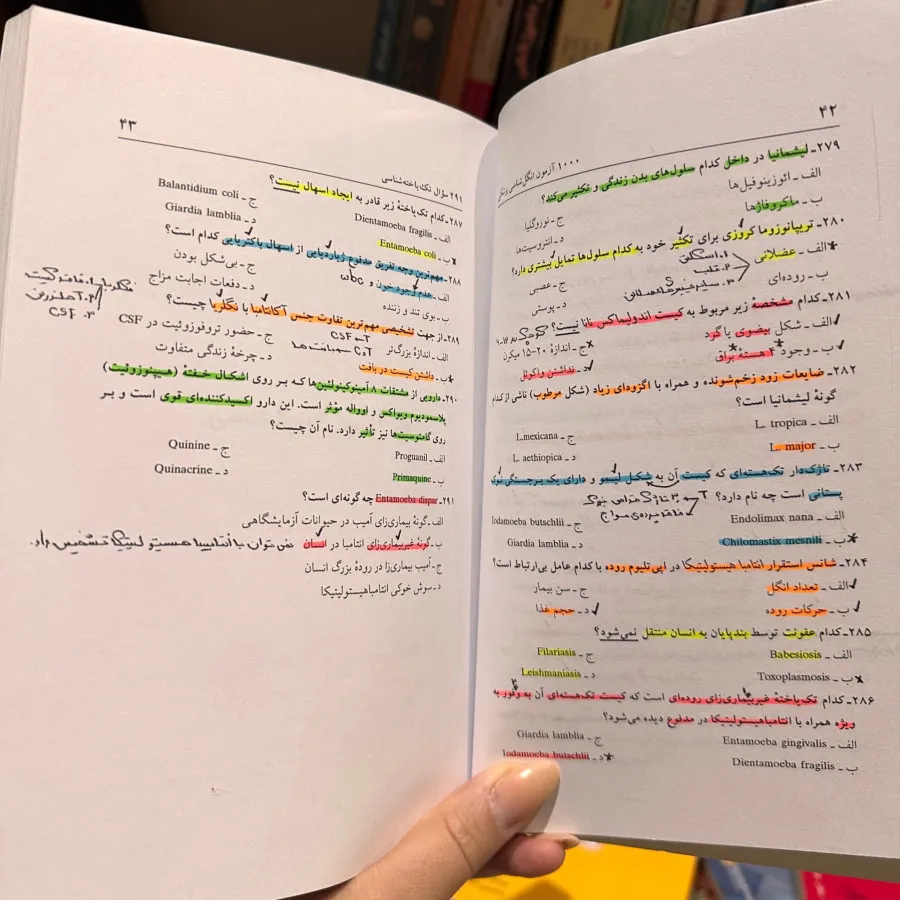 ۴۲
۱۰۰۰ آزمون انگل‌شناسی پزشکی
۲۷۹ـ لیشمانیا در داخل کدام سلول‌های بدن زندگی و تکثیر می‌کند؟
الف ـ ائوزینوفیل‌ها
ج ـ نوروگلیا
ب ـ ماکروفاژها
د ـ انتروسیت‌ها
۲۸۰ـ تریپانوزوما کروزی برای تکثیر خود به کدام سلول‌ها تمایل بیشتری دارد؟
*الف ـ عضلانی
ج ـ عصبی
ب ـ روده‌ای
د ـ پوستی
۱. اسکلتی
۲. قلب
۲۸۱ـ کدام مشخصهٔ زیر مربوط به کیست اندولیماکس نانا نیست؟
✓الف ـ شکل بیضوی یا گرد
×ج ـ اندازهٔ ۲۰-۱۵ میکرن
✓ب ـ وجود ۴ هستهٔ براق
✓د ـ نداشتن واکوئل
۲۸۲ـ ضایعات زود زخم‌شونده و همراه با اگزودای زیاد (شکل مرطوب) ناشی از کدام
گونهٔ لیشمانیا است؟
الف ـ L. tropica
ج ـ L.mexicana
ب ـ L. major
د ـ L. aethiopica
۲۸۳ـ تاژک‌دار تک‌هسته‌ای که کیست آن به شکل لیمو و دارای یک برجستگی نوک
پستانی است چه نام دارد؟
الف ـ Endolimax nana
ج ـ Iodamoeba butschlii
*ب ـ Chilomastix mesnili
د ـ Giardia lamblia
۲۸۴ـ شانس استقرار انتامبا هیستولیتیکا در اپی‌تلیوم روده با کدام عامل بی‌ارتباط است؟
✓الف ـ تعداد انگل
ج ـ سن بیمار
✓ب ـ حرکات روده
✓د ـ حجم غذا
۲۸۵ـ کدام عفونت توسط بندپایان به انسان منتقل نمی‌شود؟
الف ـ Babesiosis
ج ـ Filariasis
×ب ـ Toxoplasmosis
د ـ Leishmaniasis
۲۸۶ـ کدام تک‌یاختهٔ غیربیماری‌زای روده‌ای است که کیست تک‌هسته‌ای آن به وفور به
ویژه همراه با انتامبا‌هیستولیتیکا در مدفوع دیده می‌شود؟
الف ـ Entamoeba gingivalis
ج ـ Giardia lamblia
ب ـ Dientamoeba fragilis
*د ـ Iodamoeba butschlii
۴۳
۲۹۱ سؤال تک‌یاخته‌شناسی
۲۸۷ـ کدام تک‌یاختهٔ زیر قادر به ایجاد اسهال نیست؟
الف ـ Dientamoeba fragilis
ج ـ Balantidium coli
*ب ـ Entamoeba coli
د ـ Giardia lamblia
۲۸۸ـ مهم‌ترین وجه تفریق مدفوع ژیاردیایی از اسهال باکتریایی کدام است؟
الف ـ عدم وجود خون و wbc
ج ـ بی‌شکل بودن
ب ـ بوی تند و زننده
د ـ دفعات اجابت مزاج
۲۸۹ـ از جهت تشخیصی مهم‌ترین تفاوت جنس آکانتامبا با نگلریا چیست؟
الف ـ اندازهٔ بزرگ‌تر
ج ـ حضور تروفوزوئیت در CSF
*ب ـ داشتن کیست در بافت
د ـ چرخهٔ زندگی متفاوت
۳. CSF
۲۹۰ـ دارویی از مشتقات ۸ آمینوکینولئین‌ها که بر روی اشکال خفتهٔ (هیپنوزوئیت)
پلاسمودیوم ویواکس و اوواله مؤثر است. این دارو اکسیدکننده‌ای قوی است و بر
روی گامتوسیت‌ها نیز تأثیر دارد. نام آن چیست؟
الف ـ Proguanil
ج ـ Quinine
ب ـ Primaquine
د ـ Quinacrine
۲۹۱ـ Entamoeba dispar چه گونه‌ای است؟
الف ـ گونهٔ بیماری‌زای آمیب در حیوانات آزمایشگاهی
ب ـ گونهٔ غیربیماری‌زای انتامبا در انسان نمی‌توان با انتامیبا هیستولیتیکا تشخیص داد.
ج ـ آمیب بیماری‌زا در رودهٔ بزرگ انسان
د ـ سوش خوکی انتامبا‌هیستولیتیکا